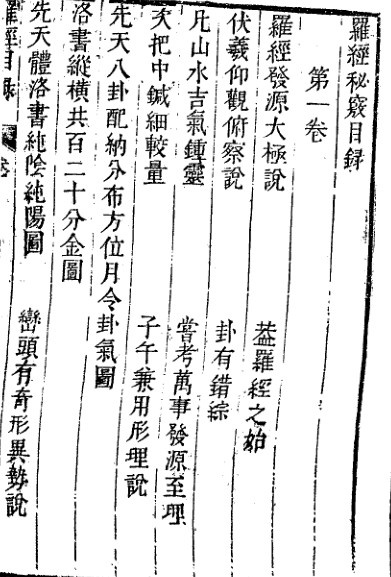 羅經秘竅目録
第一卷
羅經發源太極說 葢羅經之始
伏羲仰觀俯察說 卦有錯綜
凡山水吉氣鍾靈 嘗考萬事發源至理
次把中鍼細較量 子午兼用形理說
先天八卦配納分布方位月令卦氣圖
洛書縱橫共百二十分金圖
先天體洛書純陰純陽圖 巒頭有奇形異勢說
羅經目録